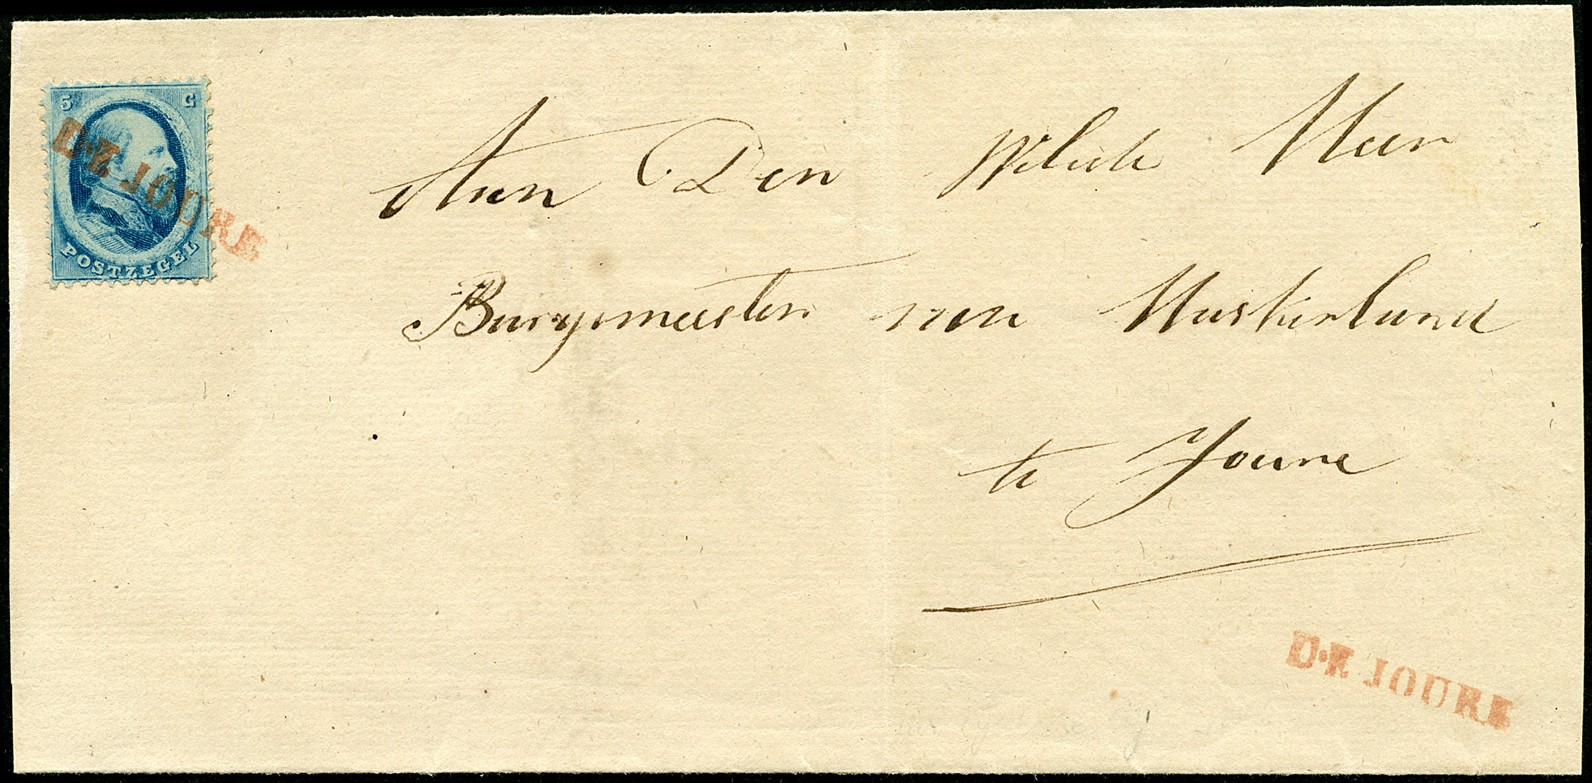 5 C
DE JOURE
POSTZEGEL
Aan Den WelEde Heer
Burgemeester van Haskerland
te Joure
DE JOURE